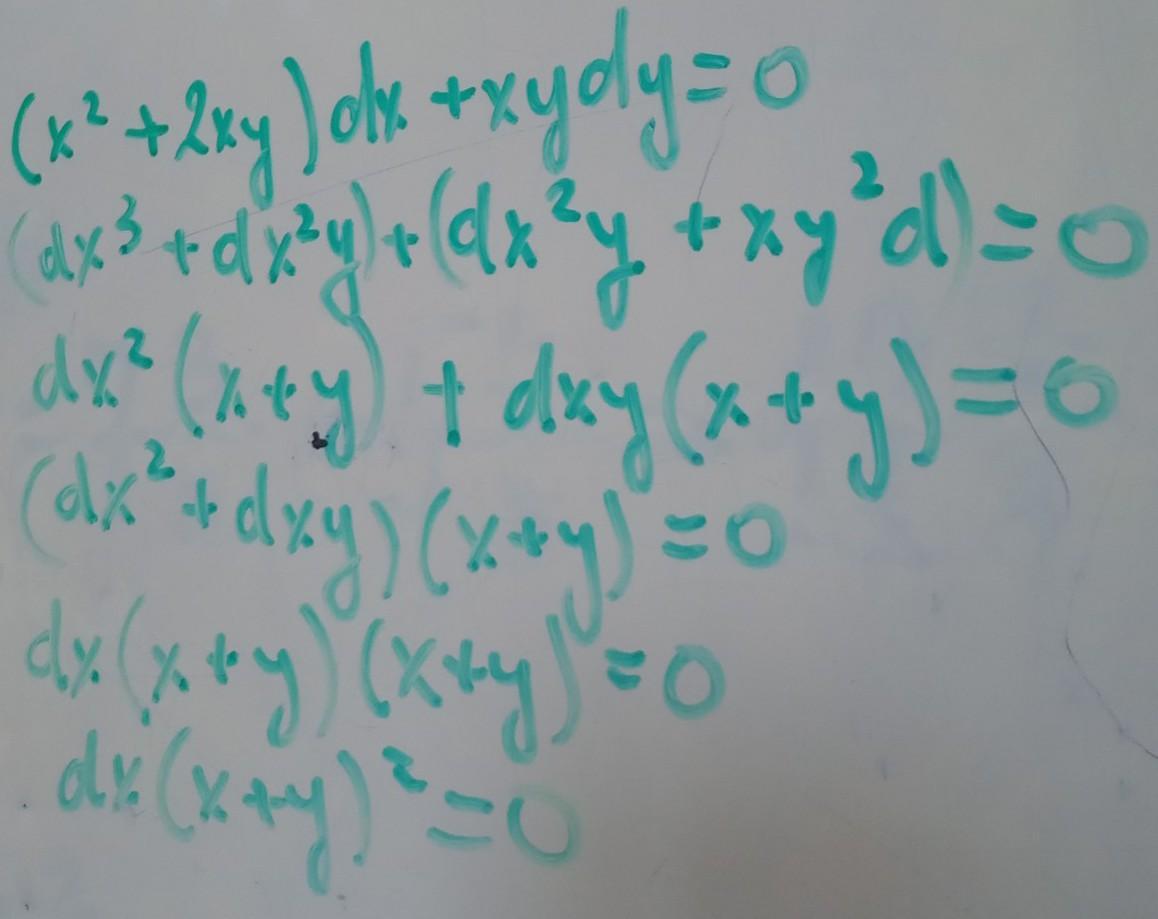 (x² + 2xy) dx + xy dy = 0
(dx³ + dx²y) + (dx²y + xy²d) = 0
dx² (x + y) + dxy (x + y) = 0
(dx² + dxy) (x + y) = 0
dx (x + y) (x + y) = 0
dx (x + y)² = 0